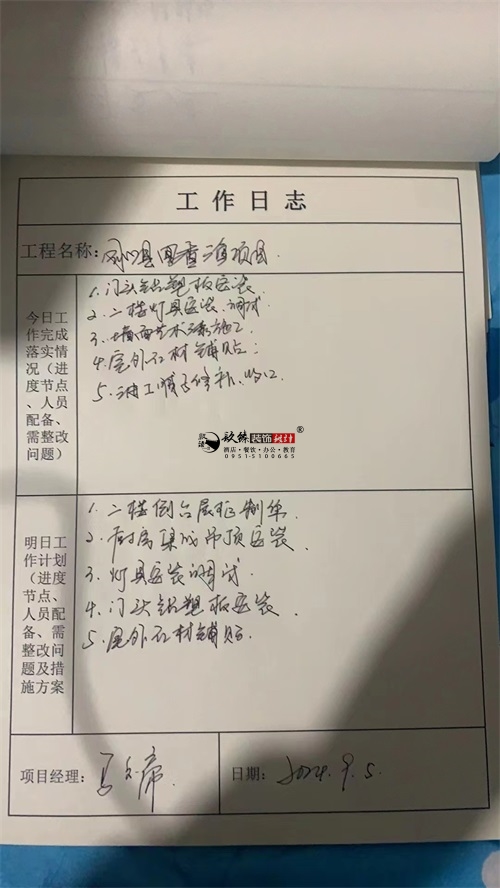 工作日志
工程名称:
今日工作完成落实情况(进度节点、人员配备、需整改问题)
1. 门头铝塑板安装.
2. 二楼灯具安装、调试
3. 墙面艺术漆施工
4. 屋外石材铺贴;
5. 油工腻子修补、收口
玖臻装饰设计®
酒店·餐饮·办公·教育
0951-5100665
明日工作计划(进度节点、人员配备、需整改问题及措施方案
1. 二楼倒台
2. 厨房集成吊顶安装.
3. 灯具安装调试
4. 门头铝塑板安装.
5. 屋外石材铺贴.
项目经理:
日期: 2024.9.5.